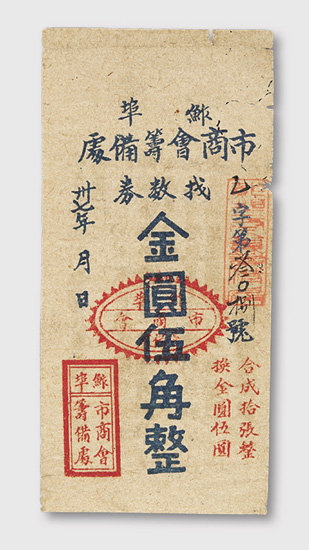 埠
市商會籌備處
找數券
乙字第 0捌號
金圓伍角整
卅七年 月 日
合成拾張整
換金圓伍圓
埠
市商會
籌備處
埠
市 會